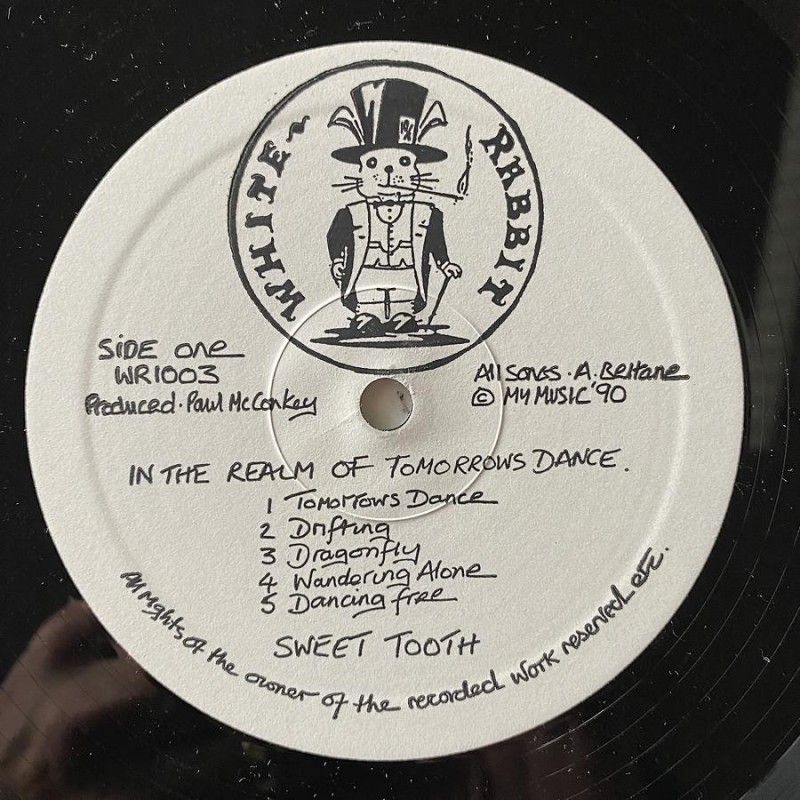 WHITE~ RABBIT
SiDE one
WR1003
Produced · Paul McConkey
All songs · A. Beltane
© MY MUSIC '90
IN THE REALM OF TOMORROWS DANCE.
1 Tomorrows Dance
2 Drifting
3 Dragonfly
4 Wandering Alone
5 Dancing free
SWEET TOOTH
All rights of the owner of the recorded work reserved etc.